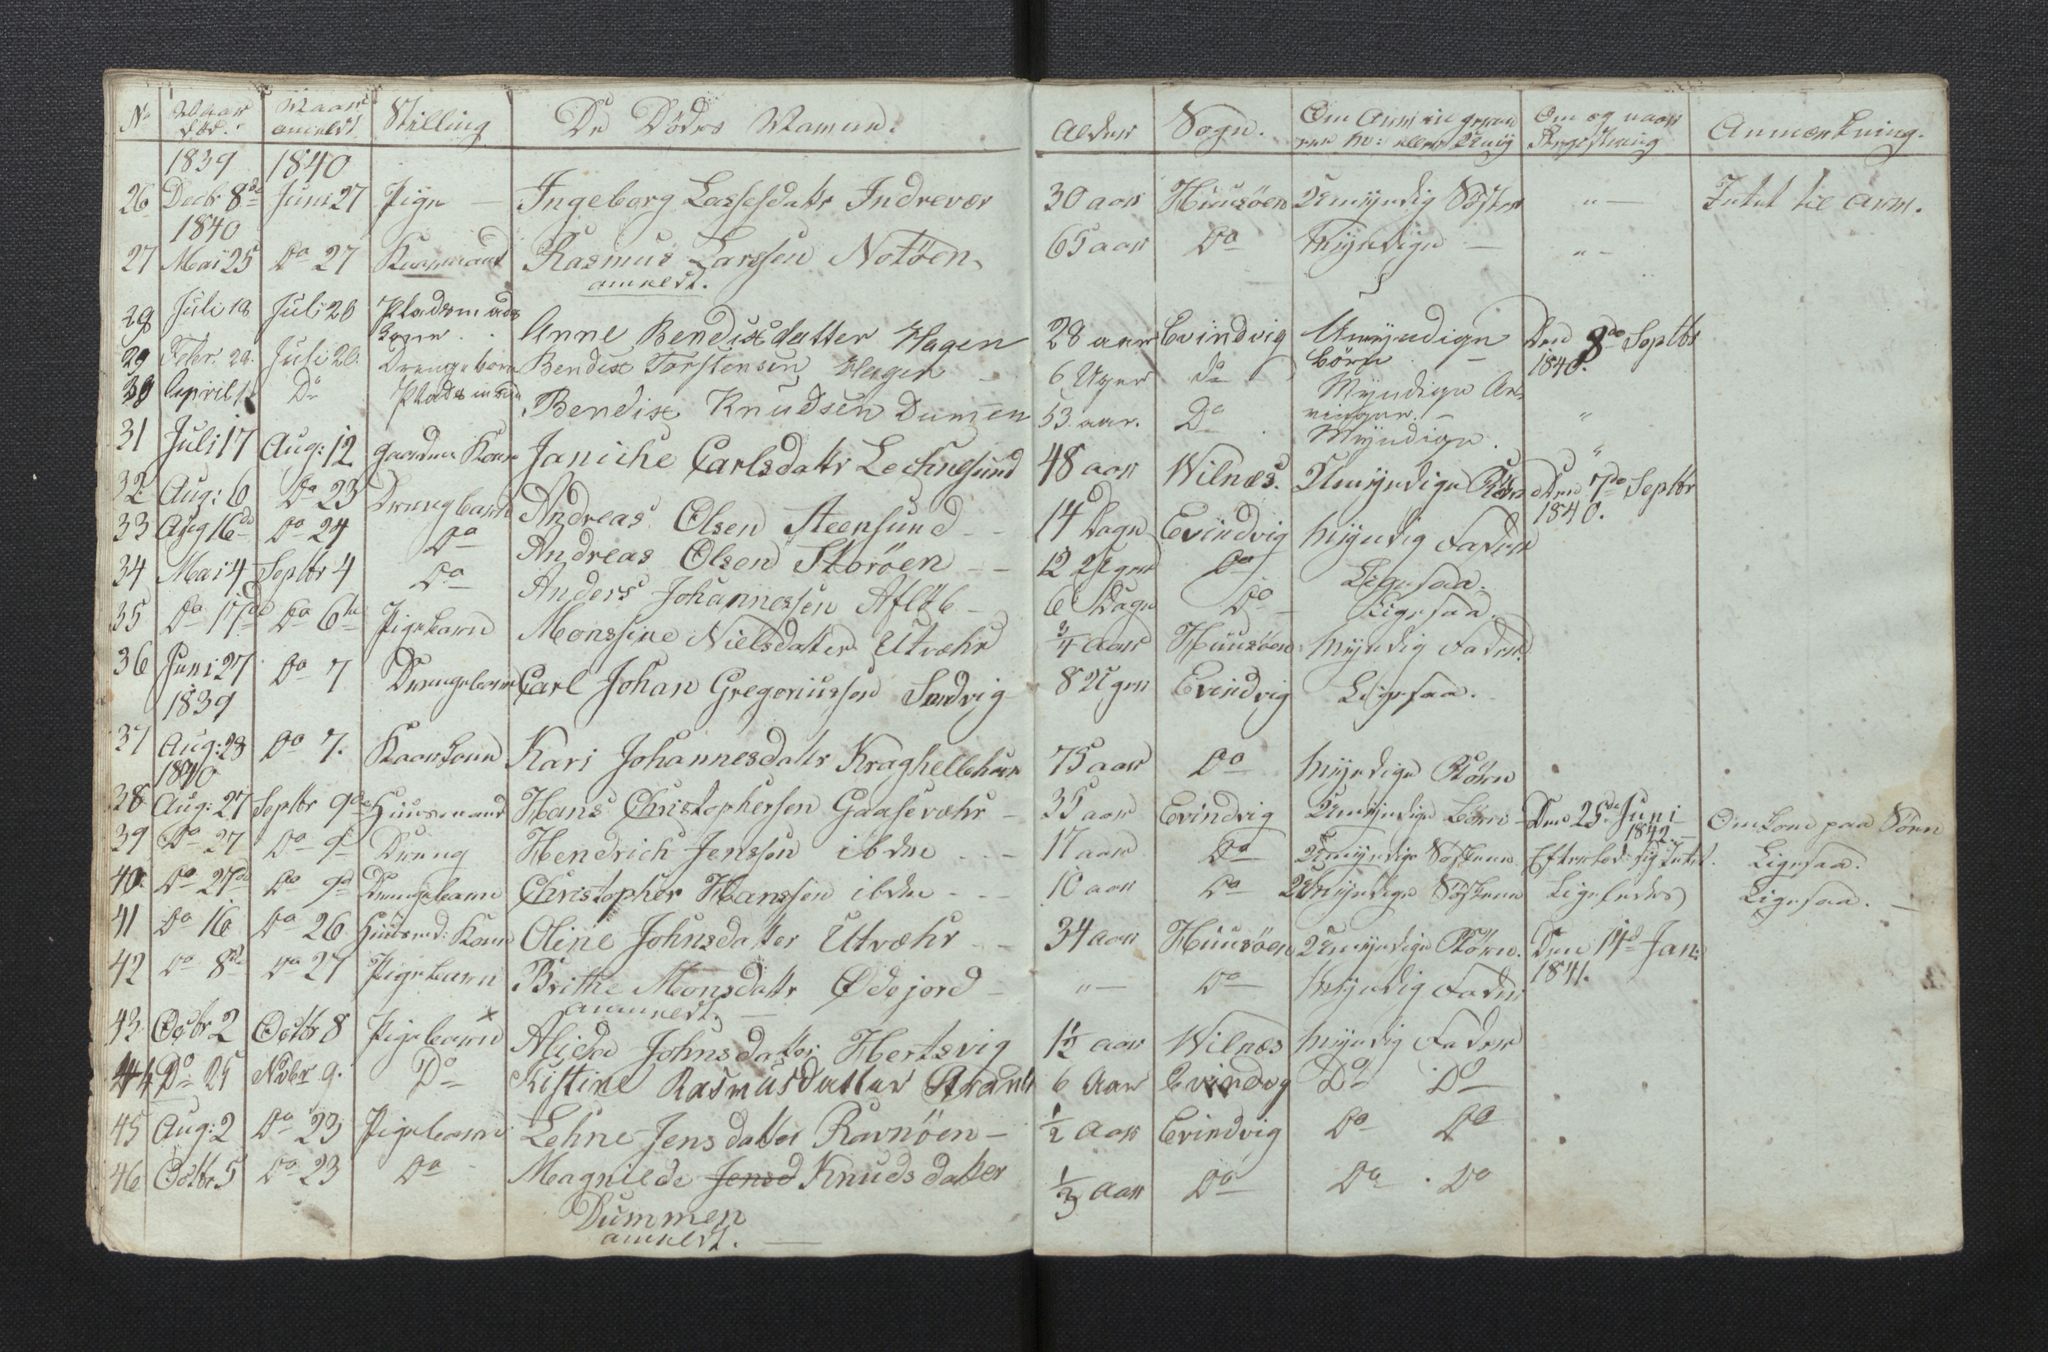 No Naar død. Naar anmeldt Stilling De Dødes Navne. Alder Sogn. Om Arvinger ere m: eller Umÿ Om og naar Registrering Anmærkning.
1839 1840
26 Decbr 8de Juni 27 Pige — Ingeborg Lassesdattr Indrevær 30 aar Huusöen Umÿndig Söster " — Intet til Arv.
1840
27 Mai 25 Do 27 Kaarmand Rasmus Larssen Notöen. 65 aar Do Mÿndige — " —
anmeldt.
28 Juli 18 Juli 20 Pladsmands Kone Anne Bendixdatter Hagen 28 aar Evindvig Umÿndige börn Den 8de Septbr 1840.
29 Febr. 29. Juli 20. Drengebarn Bendix Torstensen Hagen 6 Uger do
30 April 1 Do Pladsmand Bendix Knudsen Dumen 53 aar. Do Myndige Arvinger. — "
31 Juli 17 Aug: 12 Gaardm Kone Janiche Carlsdattr Lechnesund 48 aar Wilnæs. Mÿndige. "
32 Aug: 6 Do 23 Drengebarn Andreas Olsen Steensund 14 Dage Evindvig Umÿndige Börn Den 7de Septbr 1840.
33 Aug 16de Do 24 Do Andreas Olsen Storöen 12 Uger Do Mÿndig Fader
34 Mai 4 Septbr 4 Do Anders Johannessen Afløb — 6 Dage Do Ligesaa.
35 Do 17de Do 6te Pigebarn Monssine Nielsdatter Utvæhr 3/4 Aar Huusöen Ligesaa.
36 Juni 27 Do 7 Drengebarn Carl Johan Gregoriussen Sandvig 8 Uger Evindvig Mÿndig Fader.
1839 Ligesaa.
37 Aug: 28 Do 7. Kaarkone Kari Johannesdattr Kraghellehun 75 aar Do Mÿndige Börn
1840
38 Aug: 27 Septbr 9de Huusmand Hans Christophersen Gaasevæhr — 35 aar Evindvig Umÿndige Börn — Den 25de Juni 1842. — Omkom paa Söen
39 Do 27 Do 9 Dreng Hendrich Jenssen ibdm 17 aar Do Umÿndige Söskene Efterlod sig Intet. Ligesaa.
40 Do 27de Do 9de Drengebarn Christopher Hanssen ibdm 10 aar Do Umÿndige Söskene Ligeledes Ligesaa. —
41 Do 16 Do 26 Huusmd: Kone Oline Johnsdatter Utvæhr 34 aar Huusöen Umÿndige Börn. Den 14de Jan: 1841.
42 Do 8de Do 27 Pigebarn Brithe Monsdattr Ødejord — " — Do Mÿndig Fader
anmeldt. —
43 Octbr 2 Octbr 8 Pigebarn Alida Johnsdatter Hertsvig 1 1/2 aar Wilnæs Mÿndig Fader
44 Do 25 Nvbr 9. Do Kistine Rasmusdatter 6 Aar Evindvg Do Do
45 Aug: 2 Do 23 Pigebarn Lehne Jensdatter Ravnöen — 1/2 Aar Evindvig Do Do
46 Octbr 5 Do 23 Do Magnilde Jensd Knudsdatter 1/3 Aar Do Do Do
Dummen
anmeldt. —